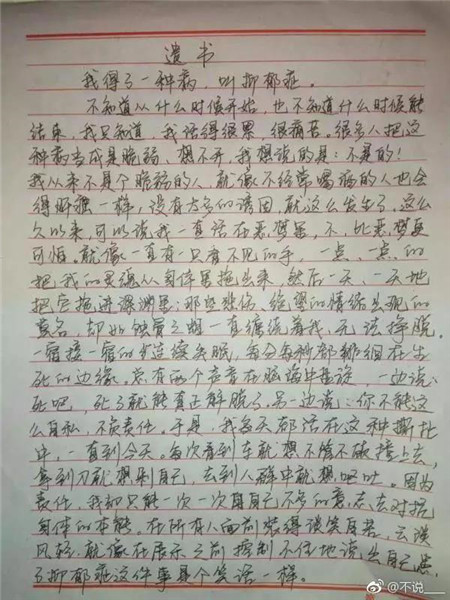 遗书
我得了一种病，叫抑郁症。
不知道从什么时候开始，也不知道什么时候能
结束，我只知道，我活得很累，很痛苦。很多人把这
种病当成是脆弱、想不开，我想说的是：不是的！
我从来不是个脆弱的人，就像不经常喝酒的人也会
得肝癌一样，没有太多的诱因，就这么发生了，这么
久以来，可以说，我一直活在恶梦里，不，比恶梦更
可怕，就像一直有一只看不见的手，一点、一点的
把我的灵魂从身体里拖出来，然后一天、一天地
把它拖进深渊里；那些悲伤、绝望的情绪出现的
莫名，却如铁索之网一直缠绕着我，无法挣脱。
一宿接一宿的持续失眠，每分每秒都徘徊在生
死的边缘，总有两个声音在脑海中盘旋，一边说：
死吧，死了就能真正解脱了，另一边说：你不能这
么自私、不负责任。于是，我每天都活在这种撕扯
中，一直到今天。每次看到车就想不管不顾撞上去，
拿到刀就想割自己，去到人群中就想呕吐。因为
责任，我却只能一次一次用自己不多的意志去对抗
身体的本能。在所有人面前装得谈笑自若，云淡
风轻，就像在展示之前控制不住地说出自己患
了抑郁症这件事是个笑话一样。
@不说___